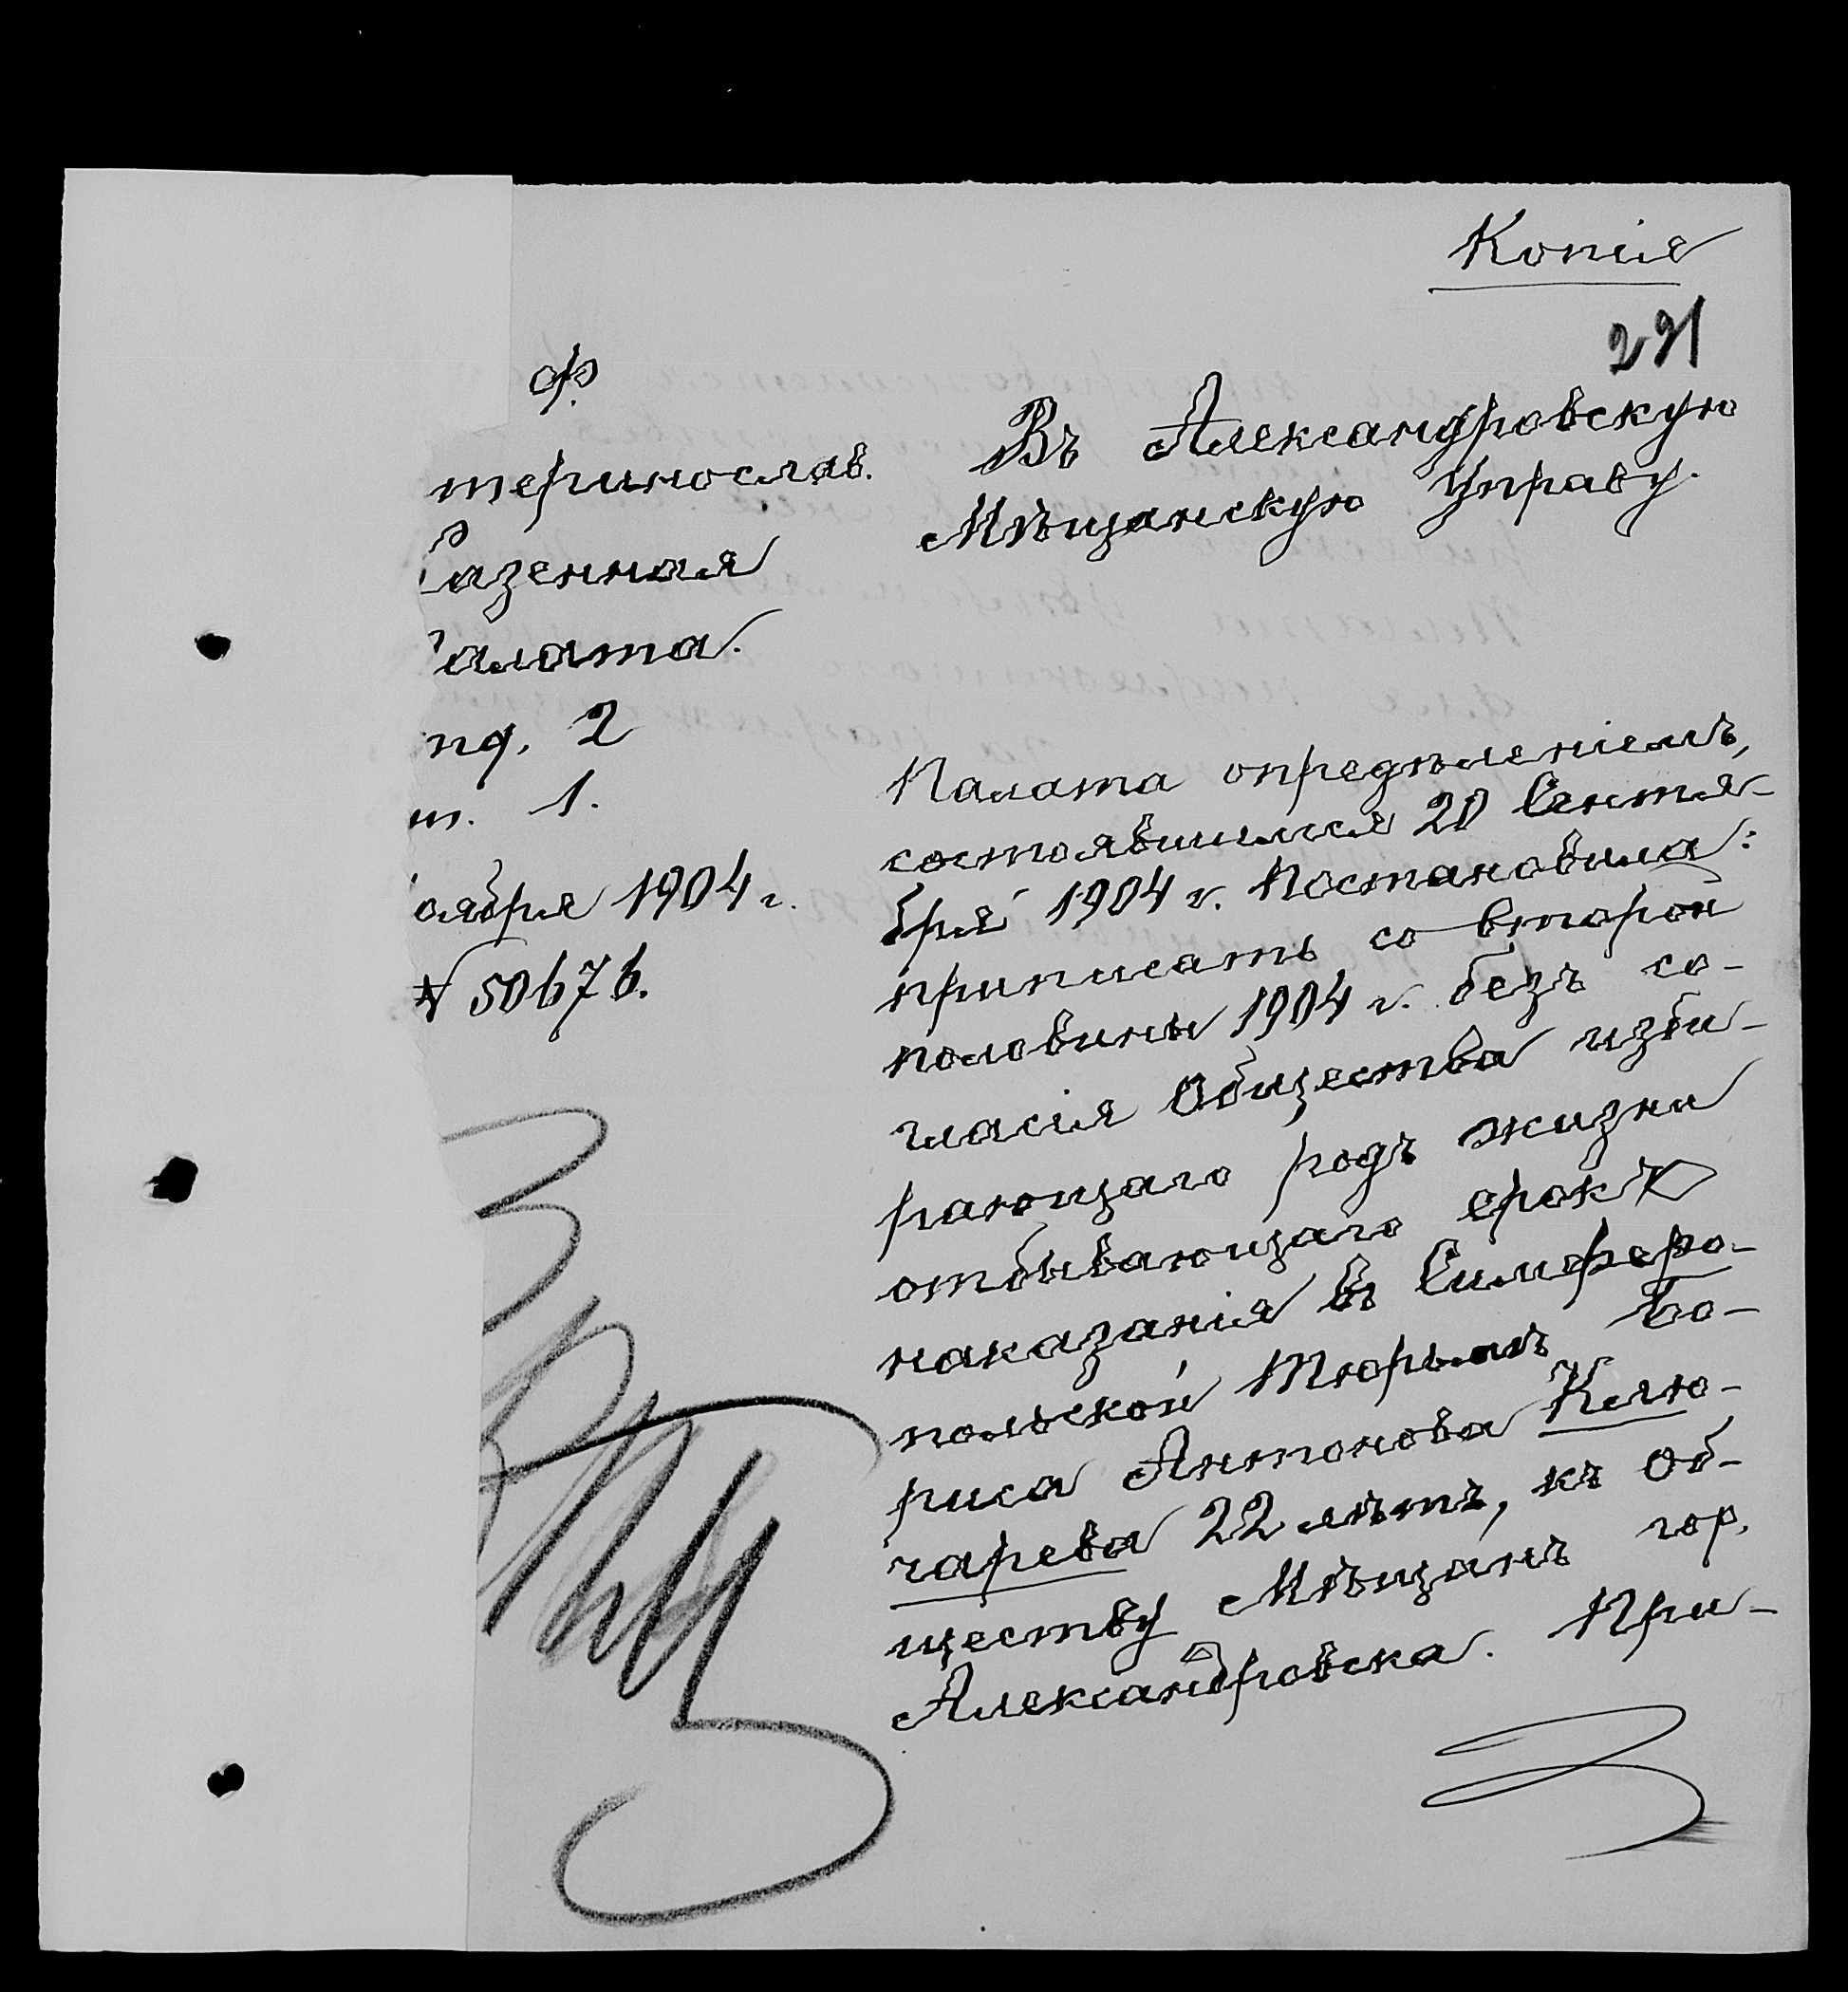 Копія
291
ф.
теринослав.
азенная
алата.
пд. 2
т. 1.
оября 1904 г.
№ 50676.
Въ Александровскую
Мѣщанскую Управу.
Палата опредѣленіемъ,
состоявшимся 20 Сентя-
бря 1904 г. Постановила:
приписать со второй
половины 1904 г. безъ со-
гласія Общества изби-
рающаго родъ жизни
отбывающаго срокъ
наказанія въ Симферо-
польской Тюрьмѣ Бо-
риса Антонова Клю-
чарева 22 лѣтъ, къ Об-
ществу Мѣщанъ гор.
Александровска. При-